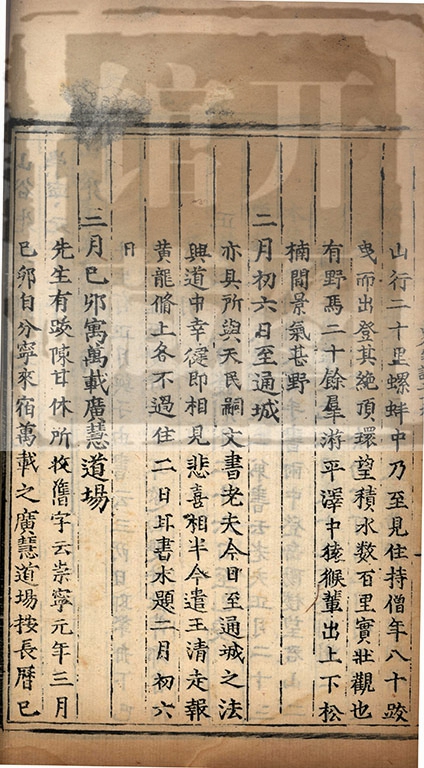 山行二十里螺蚌中乃至見住持僧年八十跛
曳而出登其絶頂環望積水數百里實壯觀也
有野馬二十餘羣游平澤中猿猴輩出上下松
楠間景氣甚野
二月初六日至通城
亦具所與天民嗣文書老夫今日至通城之法
興道中幸健即相見悲喜相半今遣王清走報
黄龍脩上各不過住二日耳書末題二月初六
日
三月己卯寓萬載廣慧道場
先生有跋陳甘休所收舊字云崇寧元年三月
己卯自分寧來宿萬載之廣慧道場按長曆己